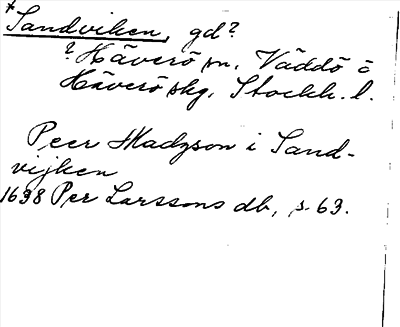 *Sandviken, gd?
? Häverö sn, Väddö o
Häverö skg, Stockh. l.
Peer Madzson i Sand-
vijken
1638 Per Larssons db, s. 63.